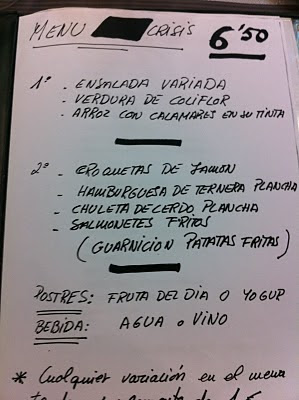 MENU CRISIS 6'50
1º - ENSALADA VARIADA
- VERDURA DE COLIFLOR
- ARROZ CON CALAMARES EN SU TINTA
2º - CROQUETAS DE JAMON
- HAMBURGUESA DE TERNERA PLANCHA
- CHULETA DE CERDO PLANCHA
- SALMONETES FRITOS
(GUARNICION PATATAS FRITAS)
POSTRES: FRUTA DEL DIA O YOGUR
BEBIDA: AGUA O VINO
* Cualquier variación en el menu